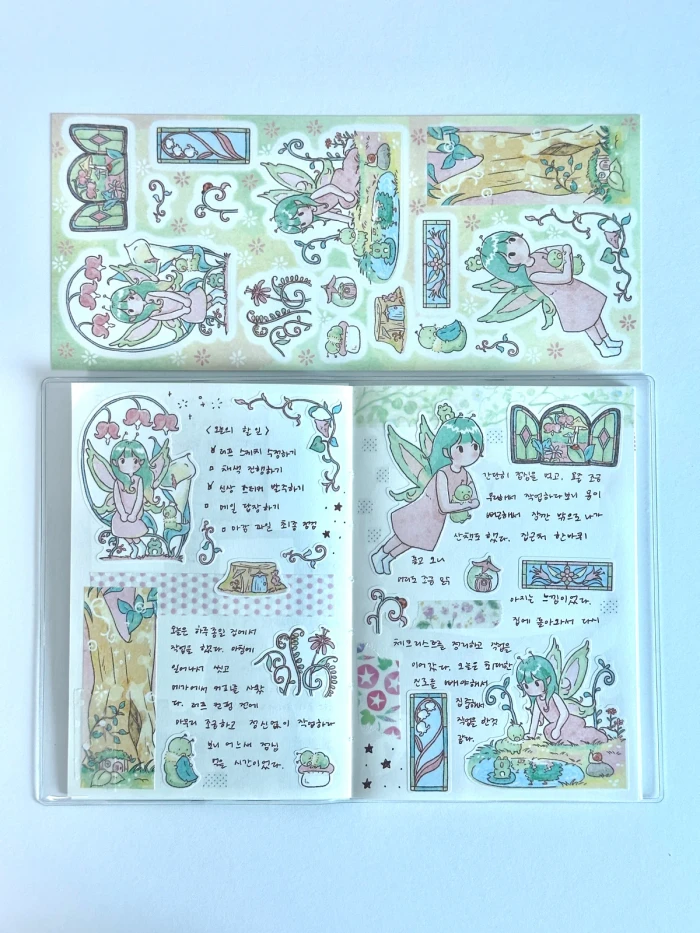 <오늘의 할 일>
러프 스케치 수정하기
채색 진행하기
신상 스티커 발주하기
메일 답장하기
마감 파일 최종 점검
오늘은 하루종일 집에서
작업을 했다. 아침에
일어나서 씻고
메가에서 커피를 사왔
다. 러프 컨펌 전에
마무리 조금하고 정신없이 작업하다
보니 어느새 점심
먹을 시간이었다.
간단히 점심을 먹고, 오후 조금
작업하다보니 몸이
뻐근해서 잠깐 밖으로 나가
산책도 했다. 집근처 한바퀴
돌고 오니
머리도 조금
아지는 느낌이었다.
집에 돌아와서 다시
체크리스트를 정리하고 작업을
이어갔다. 오늘은 최대한
신호를 배야해서
집중해서
작업을 한것
같다.